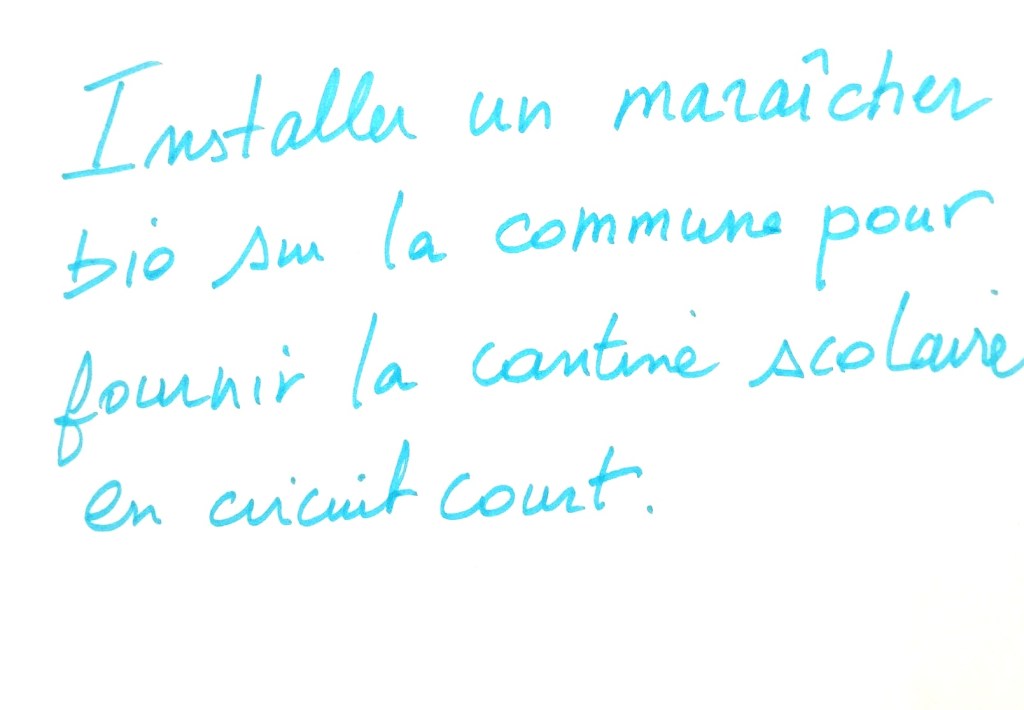 Installer un maraîcher
bio sur la commune pour
fournir la cantine scolaire
en circuit court.